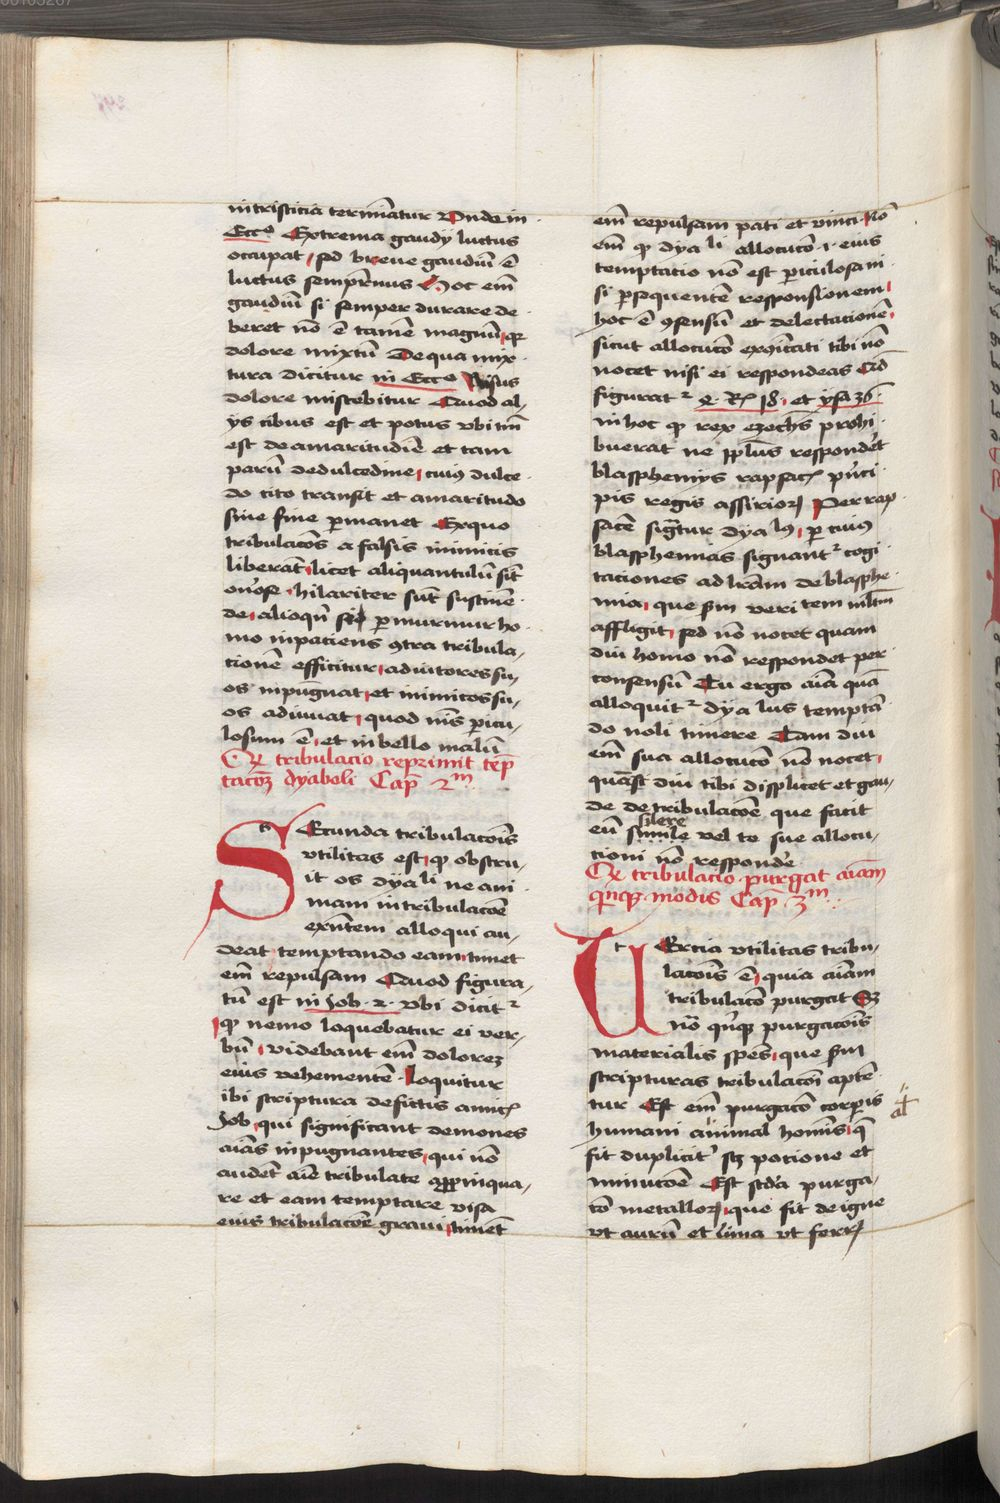 in tristicia terminatur Unde in
Ecc° Extrema gaudy luctus
occupat sed breue gaudiū ē
luctus sempr̄nus Hoc em̄
gaudiū si semper durare de
beret nō ē tamē magnū qr
dolore mixtū De qua mix
tura dicitur in Ecc° Risus
dolore miscebitur Quod al
ys cibus est et potus vbi tm̄
est de amaritudīe et tam
parū de dulcedine cuiꝰ dulce
do cito transit et amaritudo
sine fine ꝑmanet Ex quo
tribulacōs a falsis inimicis
liberāt licet aliquantulū sīt
on̄ose hilariter sūt sustinē
de alioqn̄ ꝑ murmur ho
mo inpaciens ꝯtra tribula
cionē efficitur adiutores su
os inpūgnat et inimicos su
os adiuuat quod nīs ꝑicu
losum ē et in bello malū
Qꝫ tribulacio reprimit tēp
tacōꝫ dyaboli Cap̄ 2m
SEcunda tribulacōis
vtilitas est qꝫ obstru
it os dyali ne ani
mam in tribulacōe
exn̄tem alloqui au
deat temptando eam timet
em̄ repulsam Quod figura
tū est in Job 2 vbi dicitr
qꝫ nemo loquebatur ei ver
bū videbant em̄ doloreꝫ
eius vehementē loquitur
ibi scriptura de fictis amicꝭ
Job qui significant demones
aīas inpugnantes qui nō
audēt aīe tribulate apꝓinqua
re et eam temptare visa
eius tribulacōe graui timēt
em̄ repulsam pati et vinci Nō
em̄ qꝫ dyali allocucō .i. eius
temptacio nō est periculosa ni
si ꝑsequentē responsionem
hoc ē ꝯsensū et delectacionē
sicut allocucō excōīcati tibi nō
nocet nisi ei respondeas Id
figuratr 4 Rꝫ 18 et ysa 36
in hoc qꝫ rex ezechīs prohi
buerat ne pplūs respondēt
blasphemys rapsacꝭ prīci
pis regis assirioꝝ Per rap
sacē sigtur dyalꝰ, ꝑ cuiꝰ
blasphemias signantr cogi
taciones ad lrām de blasphe
mia que sm̄ veritem mltm̄
affligit sed nō nocet quam
diu homo nō respondet per
consensū Tu ergo aīa quā
alloquitr dyalus temptā
do noli timere Tam diu
em̄ sua allocucō nō nocet
quādi diu tibi displicet et gau
de de tribulacōe que facit
eū silere simile vel te sue allocu
cioni nō respondēe
Qꝫ tribulacio purgat aīam
qn̄qꝫ modis Cap̄ 3m
TErcia vtilitas tribu
lacōis ē quia aīam
tribulacō purgat Sꝫ
nō qn̄qꝫ purgacōis
materialis spēs que sm̄
scripturas tribulacōi aptē
tur Est em̄ purgacō corꝑis
humani animal hominīs q̄
fit duplicitr sꝫ pocione et
minucōe Est scd̄a purga
cō metalloꝝ que fit de igne
vt aurū et lima vt ferrꝝ